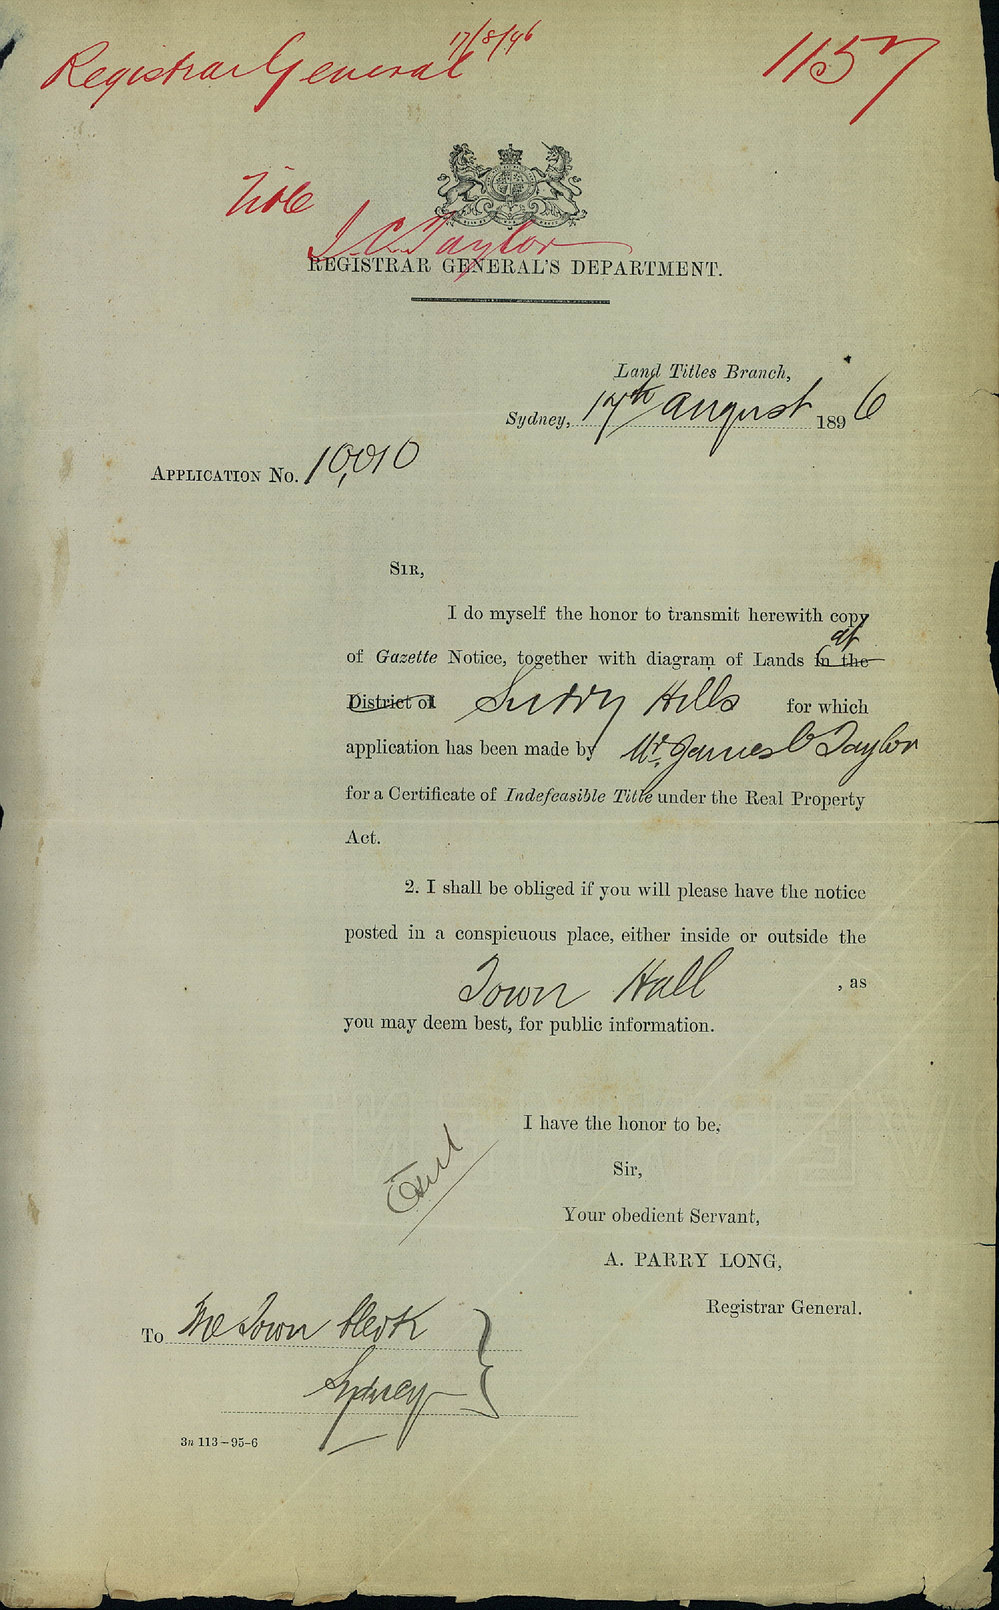 17/8/96
Registrar General
1157
Title
J. C. Taylor
REGISTRAR GENERAL'S DEPARTMENT.
Land Titles Branch,
Sydney, 17th August 1896
APPLICATION No. 10,010
SIR,
I do myself the honor to transmit herewith copy
at
of Gazette Notice, together with diagram of Lands in the
District of Surry Hills for which
application has been made by Mr. James C Taylor
for a Certificate of Indefeasible Title under the Real Property
Act.
2. I shall be obliged if you will please have the notice
posted in a conspicuous place, either inside or outside the
Town Hall , as
you may deem best, for public information.
I have the honor to be,
Sir,
Your obedient Servant,
A. PARRY LONG,
Registrar General.
To The Town Clerk
Sydney
3n 113—95-6